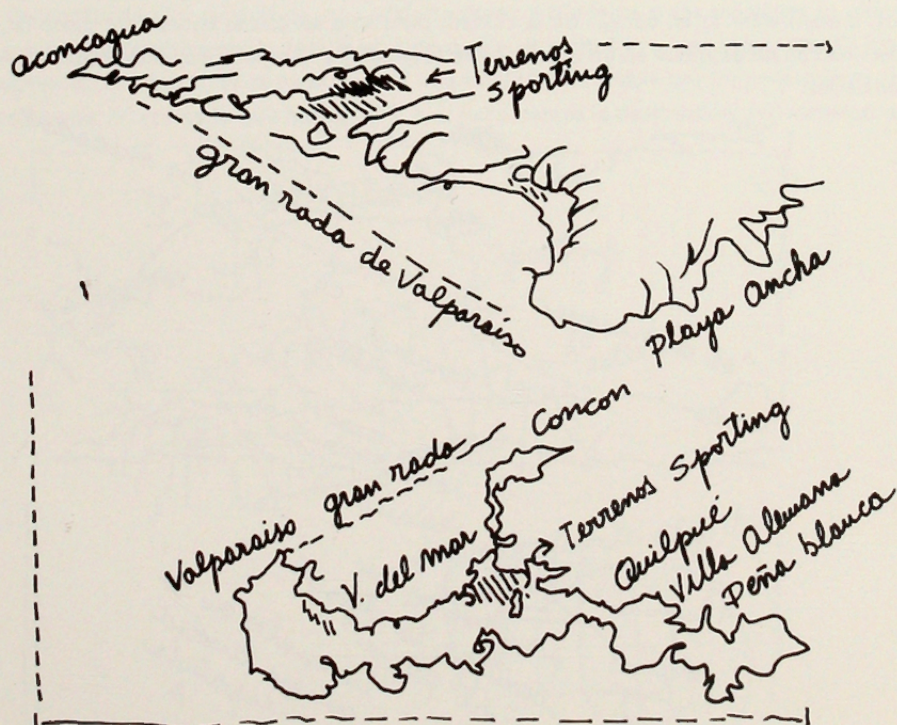 aconcagua
Terrenos
Sporting
gran rada de Valparaíso
Playa ancha
Valparaiso gran rada
Concon
V. del mar
Terrenos Sporting
Quilpué
Villa Alemana
Peña blanca